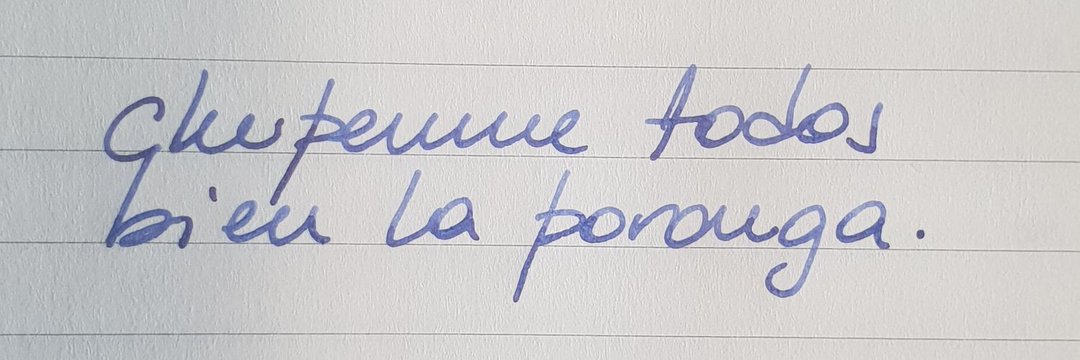 Chupenme todos
bien la poronga.